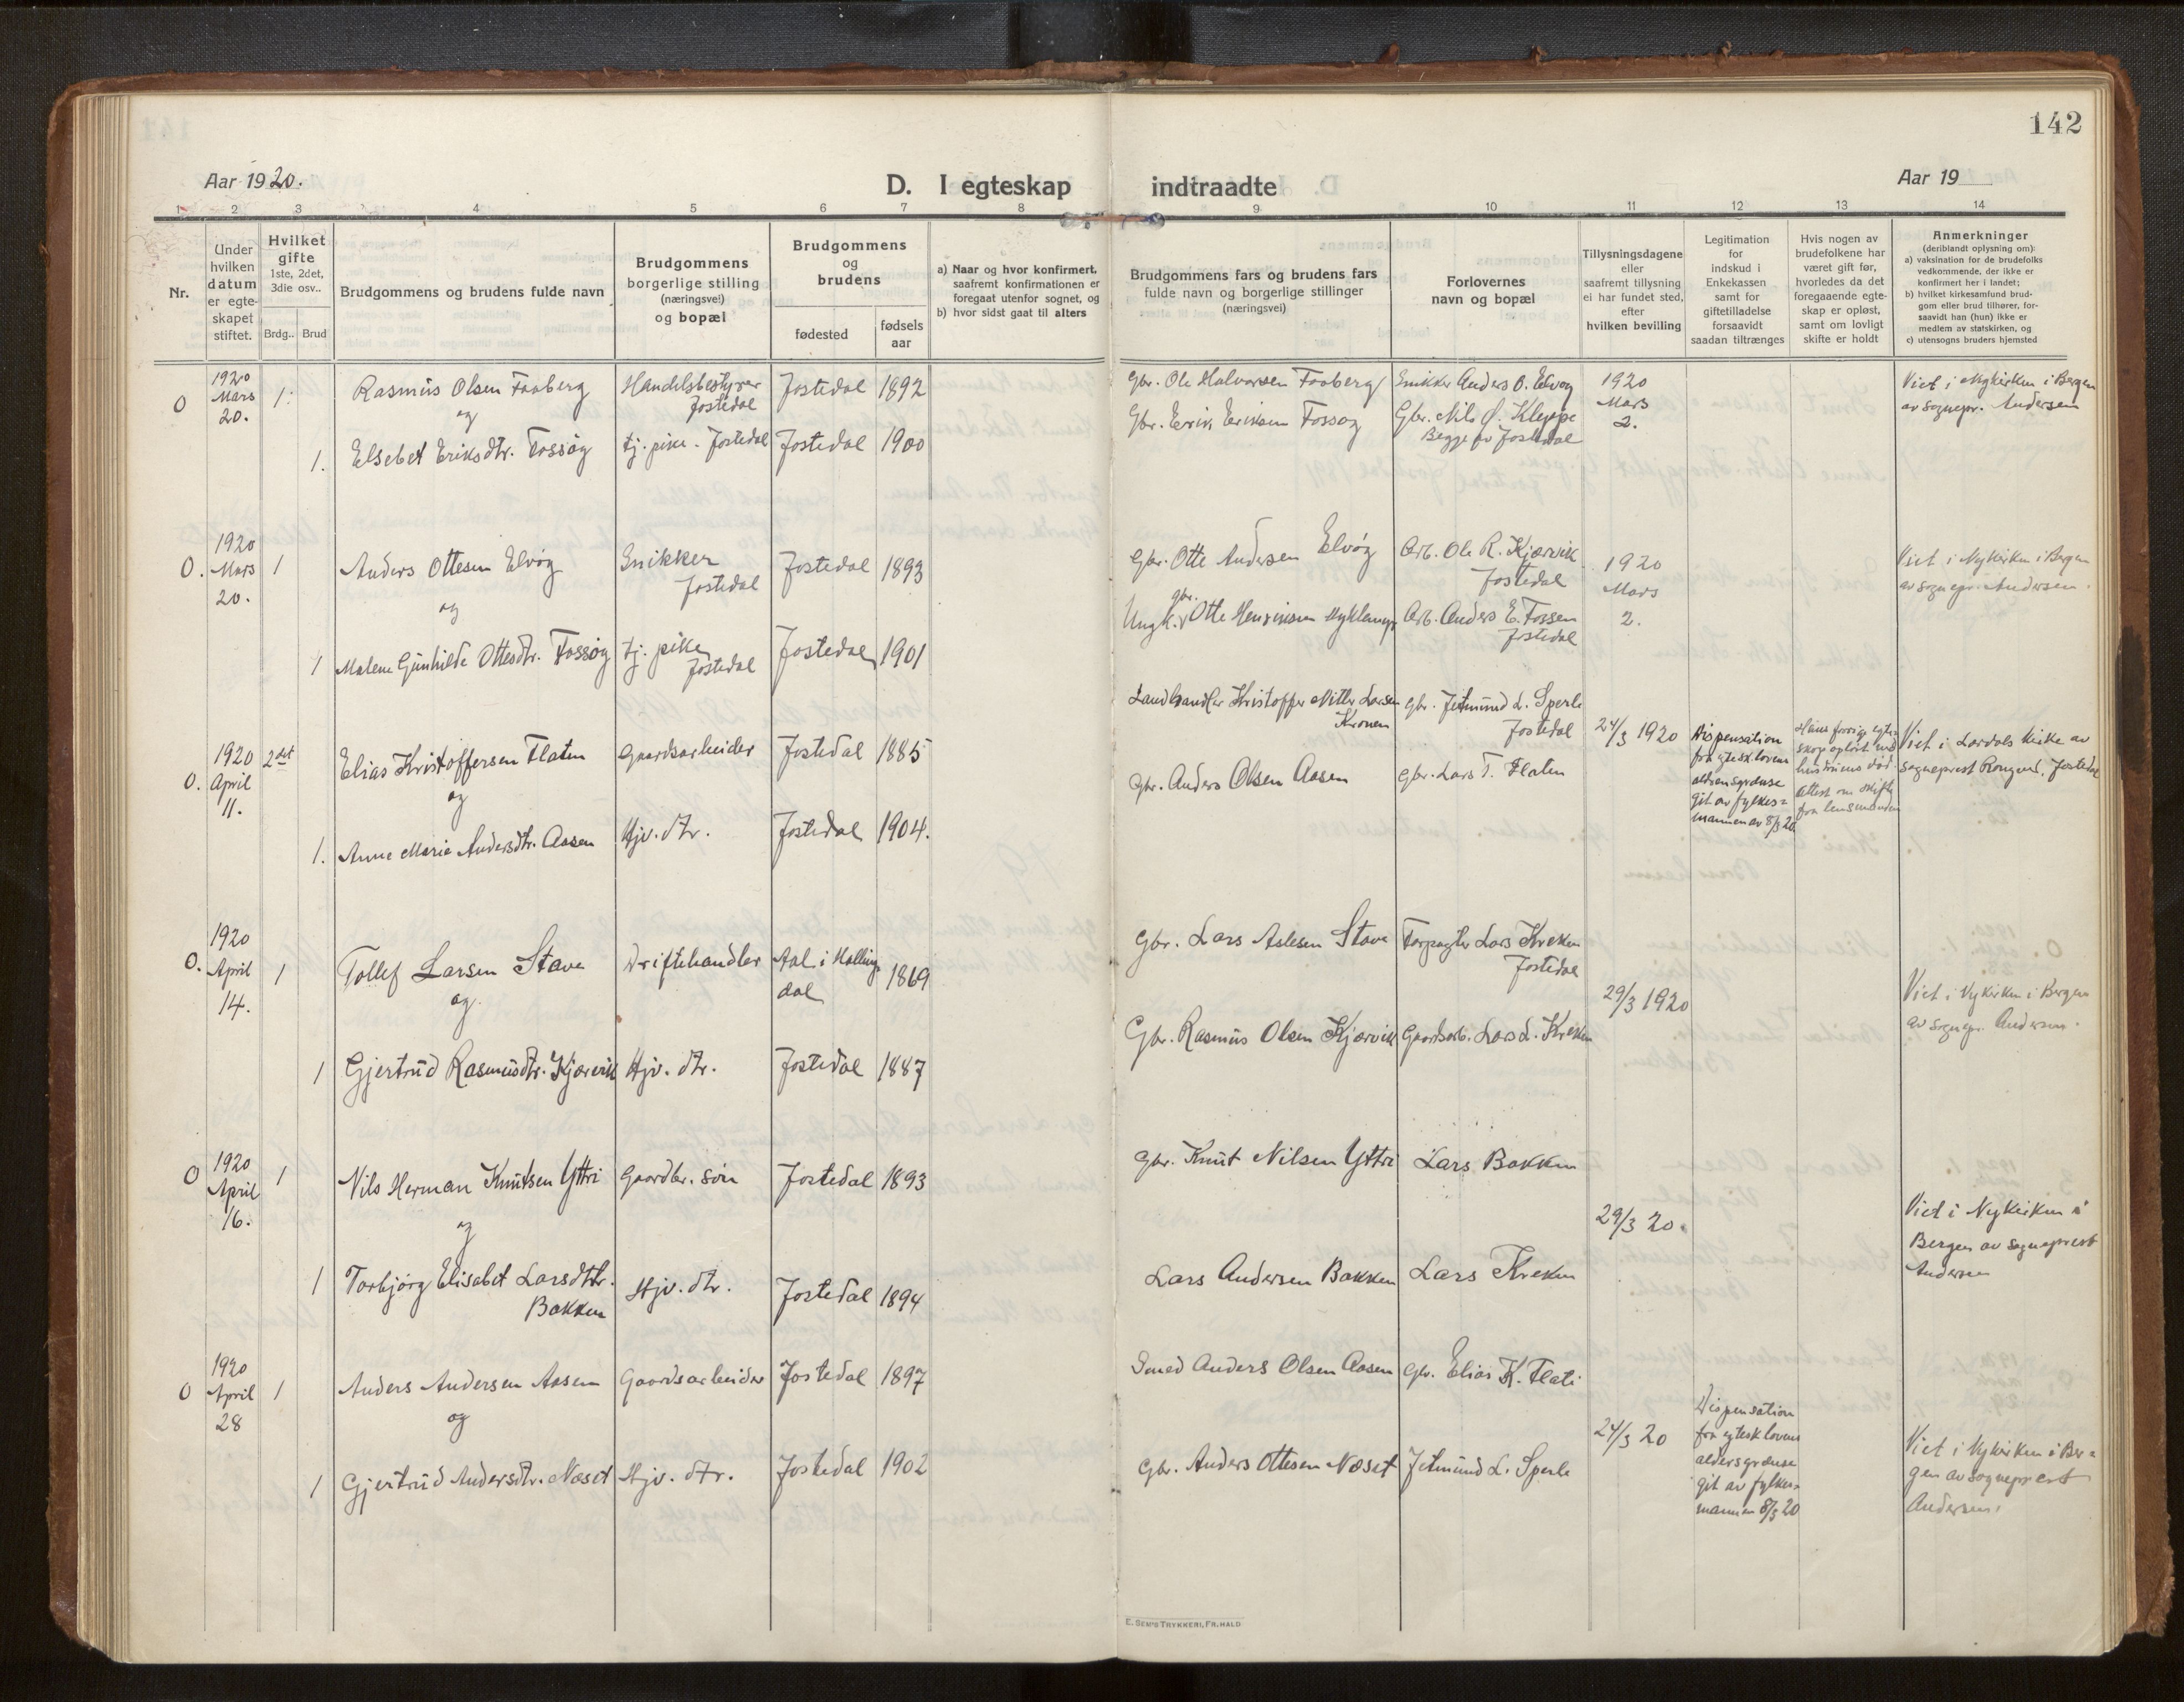 142
Aar 1920.
D. I egteskap
indtraadte
Aar 19
1 2 3 4 5 6 7 8
9 10 11 12 13 14
Nr.
Under
hvilken
datum
er egte-
skapet
stiftet.
Hvilket
gifte
1ste, 2det,
3die osv..
Brdg.. Brud
Brudgommens og brudens fulde navn
Brudgommens
borgerlige stilling
(næringsvei)
og bopæl
Brudgommens
og
brudens
fødested
fødsels
aar
a) Naar og hvor konfirmert,
saafremt konfirmationen er
foregaat utenfor sognet, og
b) hvor sidst gaat til alters
Brudgommens fars og brudens fars
fulde navn og borgerlige stillinger
(næringsvei)
Forlovernes
navn og bopæl
Tillysningsdagene
eller
saafremt tillysning
ei har fundet sted,
efter
hvilken bevilling
Legitimation
for
indskud i
Enkekassen
samt for
giftetilladelse
forsaavidt
saadan tiltrænges
Hvis nogen av
brudefolkene har
været gift før,
hvorledes da det
foregaaende egte-
skap er opløst,
samt om lovligt
skifte er holdt
Anmerkninger
(deriblandt oplysning om):
a) vaksination for de brudefolks
vedkommende, der ikke er
konfirmert her i landet;
b) hvilket kirkesamfund brud-
gom eller brud tilhører, for-
saavidt han (hun) ikke er
medlem av statskirken, og
c) utensogns bruders hjemsted
0
1920
Mars
20.
1.
Rasmus Olsen Faaberg
og
Handelsbestyrer
Jostedal
Jostedal 1892
1. Elsebet Eriksdtr. Fossøy
tj. pike. Jostedal
Jostedal 1900
Gbr. Ole Halvorsen Faaberg
Gbr. Erik Eriksen Fossøy
Snikker Anders O. Elvøy
Gbr. Nils O. Kleppe
Begge av Jostedal
1920
Mars
2.
Viet i Nykirken i Bergen
av sognepr. Andersen
0.
1920
Mars
20.
1
Anders Ottesen Elvøy
og
Snikker
Jostedal
Jostedal 1893
1 Malene Gunhilde Ottesdtr. Fossøy
tj. pike
Jostedal
Jostedal 1901
Gbr. Otte Andersen Elvøy
gbr.
Ungk. Otte Henriksen Myklemyr
Arb. Ole R. Kjærvik
Jostedal
Arb. Anders E. Fossen
Jostedal
1920
Mars
2.
Viet i Nykirken i Bergen
av sognepr. Andersen.
0.
1920
April
11.
2det
Elias Kristoffersen Flaten
og
Gaardsarbeider
Jostedal 1885
1. Anne Marie Andersdtr. Aasen
Hjv. dtr.
Jostedal 1904.
Landhandler Kristoffer Larsen
Kronen
Gbr. Anders Olsen Aasen
Gbr. Jetmund L. Sperle
Jostedal
Gbr. Lars T. Flaten
24/3 1920
Dispensation
fra egtesk.lovens
aldersgrænse
git av fylkes=
mannen av 8/3 20
Hans forrige egte-
skap opløst ved
hustruens død.
Attest om skifte
fra lensmanden
Viet i Lærdals kirke av
sogneprest Jostedal
0.
1920
April
14.
1
Tollef Larsen Stave
og
Driftehandler
Aal i Halling-
dal
1869
1 Gjertrud Rasmusdtr. Kjærvik
Hjv. dtr.
Jostedal 1887
Gbr. Lars Aslesen Stave
Gbr. Rasmus Olsen Kjærvik
Forpagter Lars Kreken
Jostedal
Gaardsarb. Lars L. Kreken
29/3 1920
Viet i Nykirken i Bergen
av sognepr. Andersen.
0
1920
April
16.
1
Nils Herman Knutsen Yttri
og
Gaardbr. søn
Jostedal 1893
1 Torbjørg Elisabet Larsdtr.
Bakken
Hjv. dtr.
Jostedal 1894
Gbr. Knut Nilsen Yttri
Lars Andersen Bakken
Lars Bakken
Lars Kreken
29/3 20.
Viet i Nykirken i
Bergen av sogneprest
Andersen
0
1920
April
28
1
Anders Andersen Aasen
og
Gaardsarbeider
Jostedal 1897
1 Gjertrud Andersdtr. Næset
Hjv. dtr.
Jostedal 1902
Smed Anders Olsen Aasen
Gbr. Anders Ottesen Næset
Gbr. Elias K. Flati
Jetmund L. Sperle
24/3 20
Dispensation
fra egtesk.lovens
aldersgrænse
git av fylkes=
mannen 8/3 20
Viet i Nykirken i Ber=
gen av sogneprest
Andersen.
E. SEM'S TRYKKERI, FR. HALD